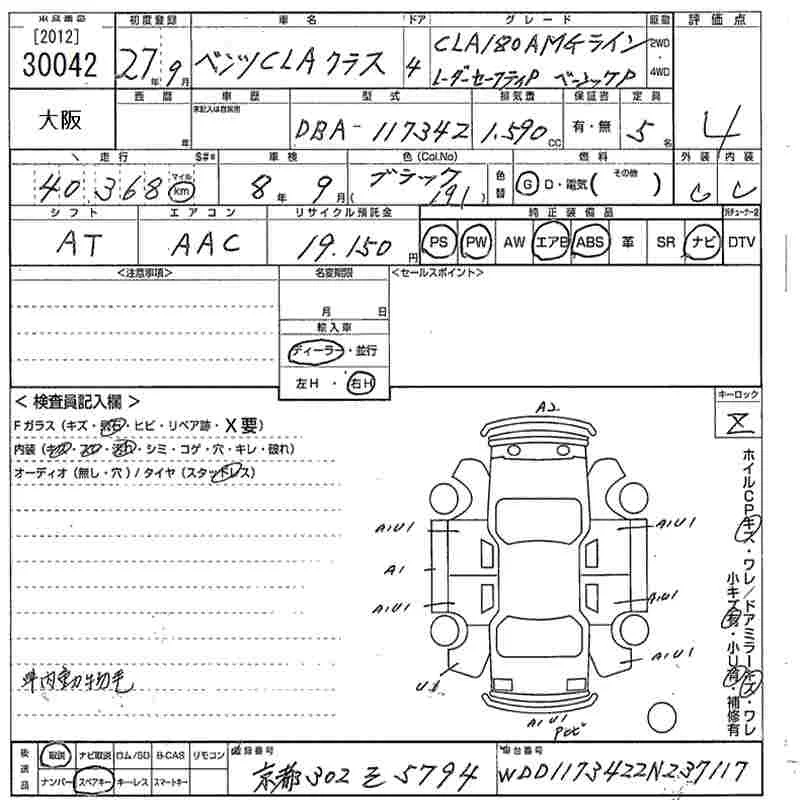 [2012]
30042
初度登録 車名 ドア グレード 駆動 評価点
27年 9月 ベンツCLAクラス 4 CLA180AMGライン 2WD・4WD
レーダーセーフティP ベーシックP
大阪
西暦 車歴 型式 排気量 保証書 定員
年 未記入は自家用 DBA-117342 1.590cc 有・無 5名 4
走行 S#® 車検 色(Col.No) 燃料 外装 内装
40,368 マイル km 8年 9月 ブラック (191) 色替 G D・電気( その他 ) C C
シフト エアコン リサイクル預託金 純正装備品
AT AAC 19,150円 PS PW AW エアB ABS 革 SR ナビ DTV
<注意事項> 名変期限 <セールスポイント>
月 日
輸入車
ディーラー・並行
左H・右H
<検査員記入欄> キーロック
Fガラス(キズ・飛石・ヒビ・リペア跡・X要)
内装(キズ・スレ・汚れ・シミ・コゲ・穴・キレ・破れ)
オーディオ(無し・穴)/タイヤ(スタッドレス)
A2
A1U1 A1U1
A1
A1U1 A1U1
A1U1
U1
A1U1
ホイルCPキズ・ワレ/ドアミラーキズ・ワレ
小キズ有・小U有・補修有
車内動物毛
後送品 取説 ナビ取説 ロム/SD B-CAS リモコン 登録番号 車台番号
ナンバー スペアキー キーレス スマートキー 京都302 5794 WDD1173422N237117